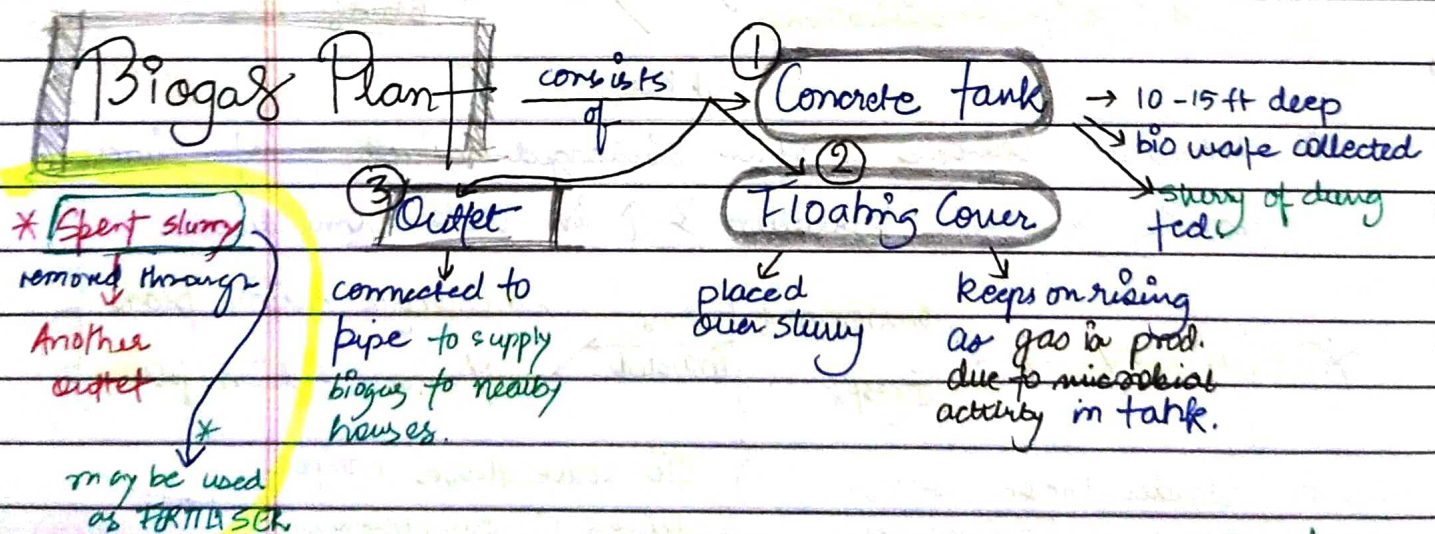 Biogas Plant
consists
of
① Concrete tank
→ 10-15 ft deep
bio waste collected
slurry of dung
fed.
② Floating Cover
placed
over slurry
keeps on rising
as gas is prod.
due to microbial
activity in tank.
③ Outlet
connected to
pipe to supply
biogas to nearby
houses.
* Spent slurry
removed through
Another
outlet
*
may be used
as FERTILISER